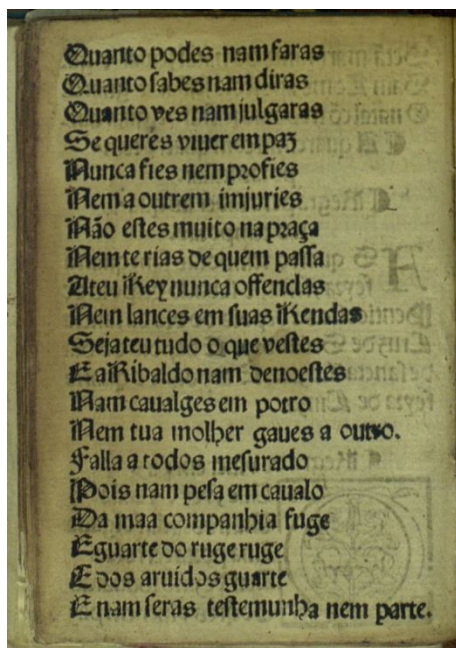 Quanto podes nam faras
Quanto sabes nam diras
Quanto ves nam julgaras
Se querés viuer em paz
Nunca fies nem profies
Nem a outrem imjuries
Não estes muito na praça
Nem te rias de quem passa
A teu Rey nunca offendas
Nem lances em suas Rendas
Seja teu tudo o que vestes
E a Ribaldo nam denoestes
Nam caualges em potro
Nem tua molher gaues a outro.
Falla a todos mesurado
Pois nam pesa em caualo
Da maa companhia fuge
E guarte do ruge ruge
E dos aruidos guarte
E nam seras testemunha nem parte.